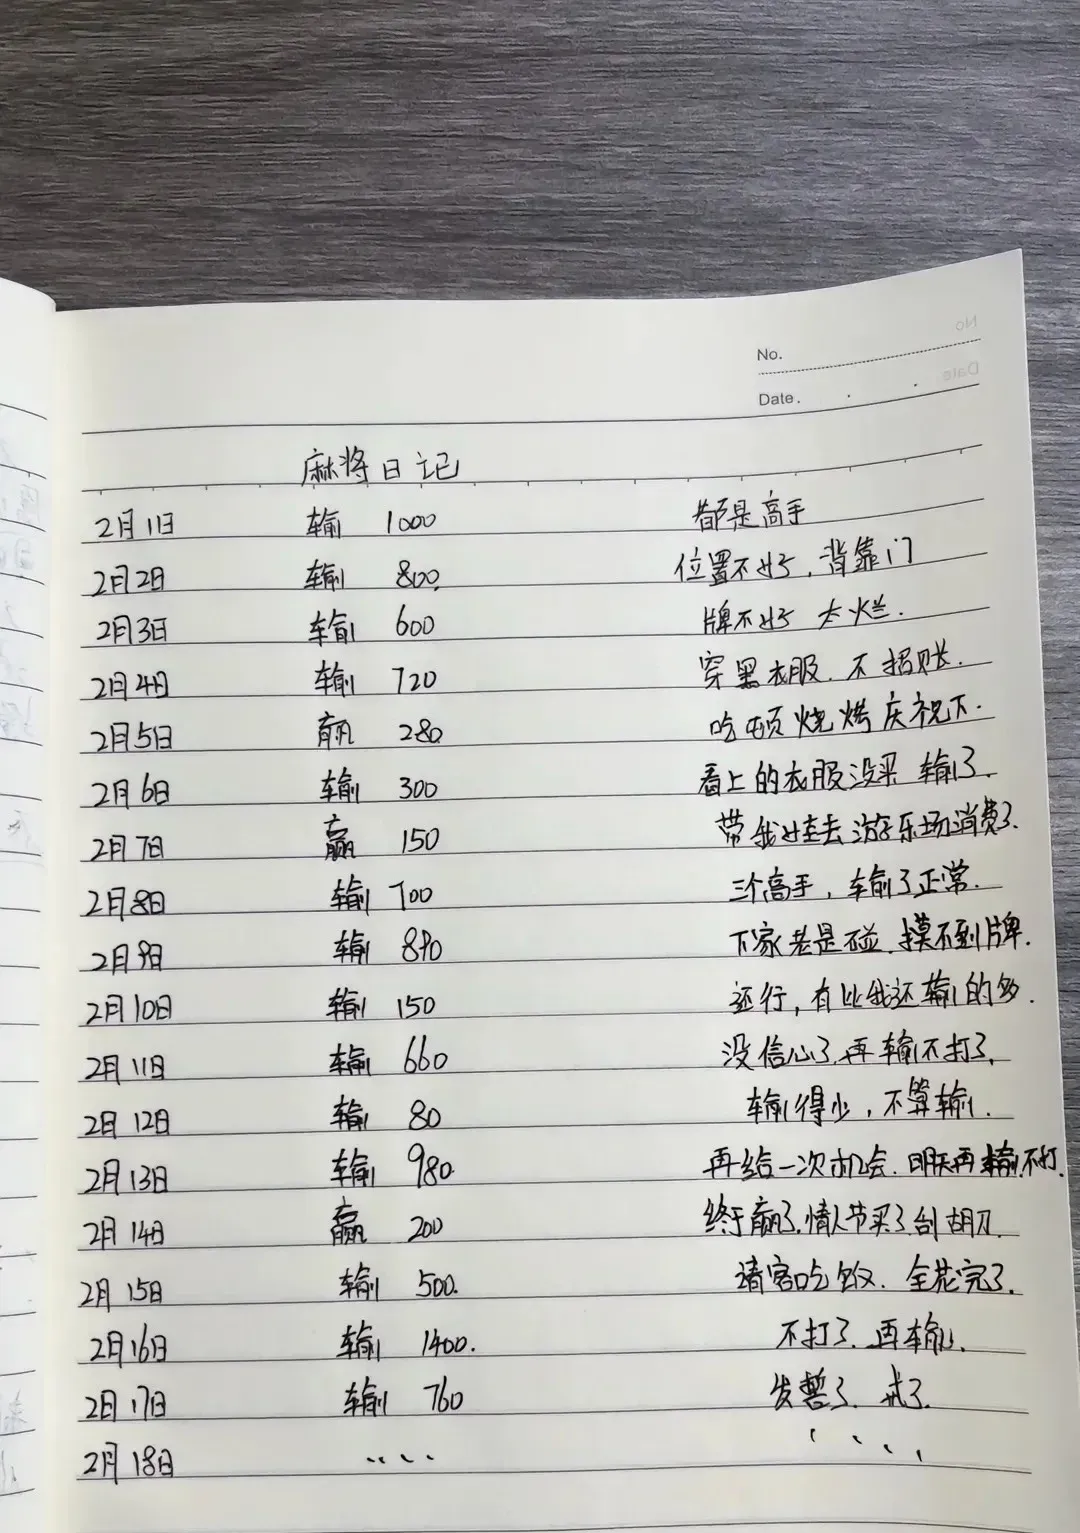 No.
Date.
麻将日记
2月1日 输 1000 都是高手
2月2日 输 800. 位置不好，背靠门
2月3日 输 600 牌不好 太烂.
2月4日 输 720 穿黑衣服. 不招财.
2月5日 赢 280 吃顿烧烤庆祝下.
2月6日 输 300 看上的衣服没买 输了.
2月7日 赢 150 带我娃去游乐场消费了.
2月8日 输 700 三个高手，输了正常.
2月9日 输 890 下家老是碰. 摸不到牌.
2月10日 输 150 还行，有比我还输的多.
2月11日 输 660 没信心了. 再输不打了.
2月12日 输 80 输得少，不算输.
2月13日 输 980. 再给一次机会. 明天再输不打.
2月14日 赢 200 终于赢了. 情人节买了刮胡刀.
2月15日 输 500. 请客吃饭. 全花完了.
2月16日 输 1400. 不打了. 再输
2月17日 输 760 发誓了. 戒了.
2月18日 .... ....